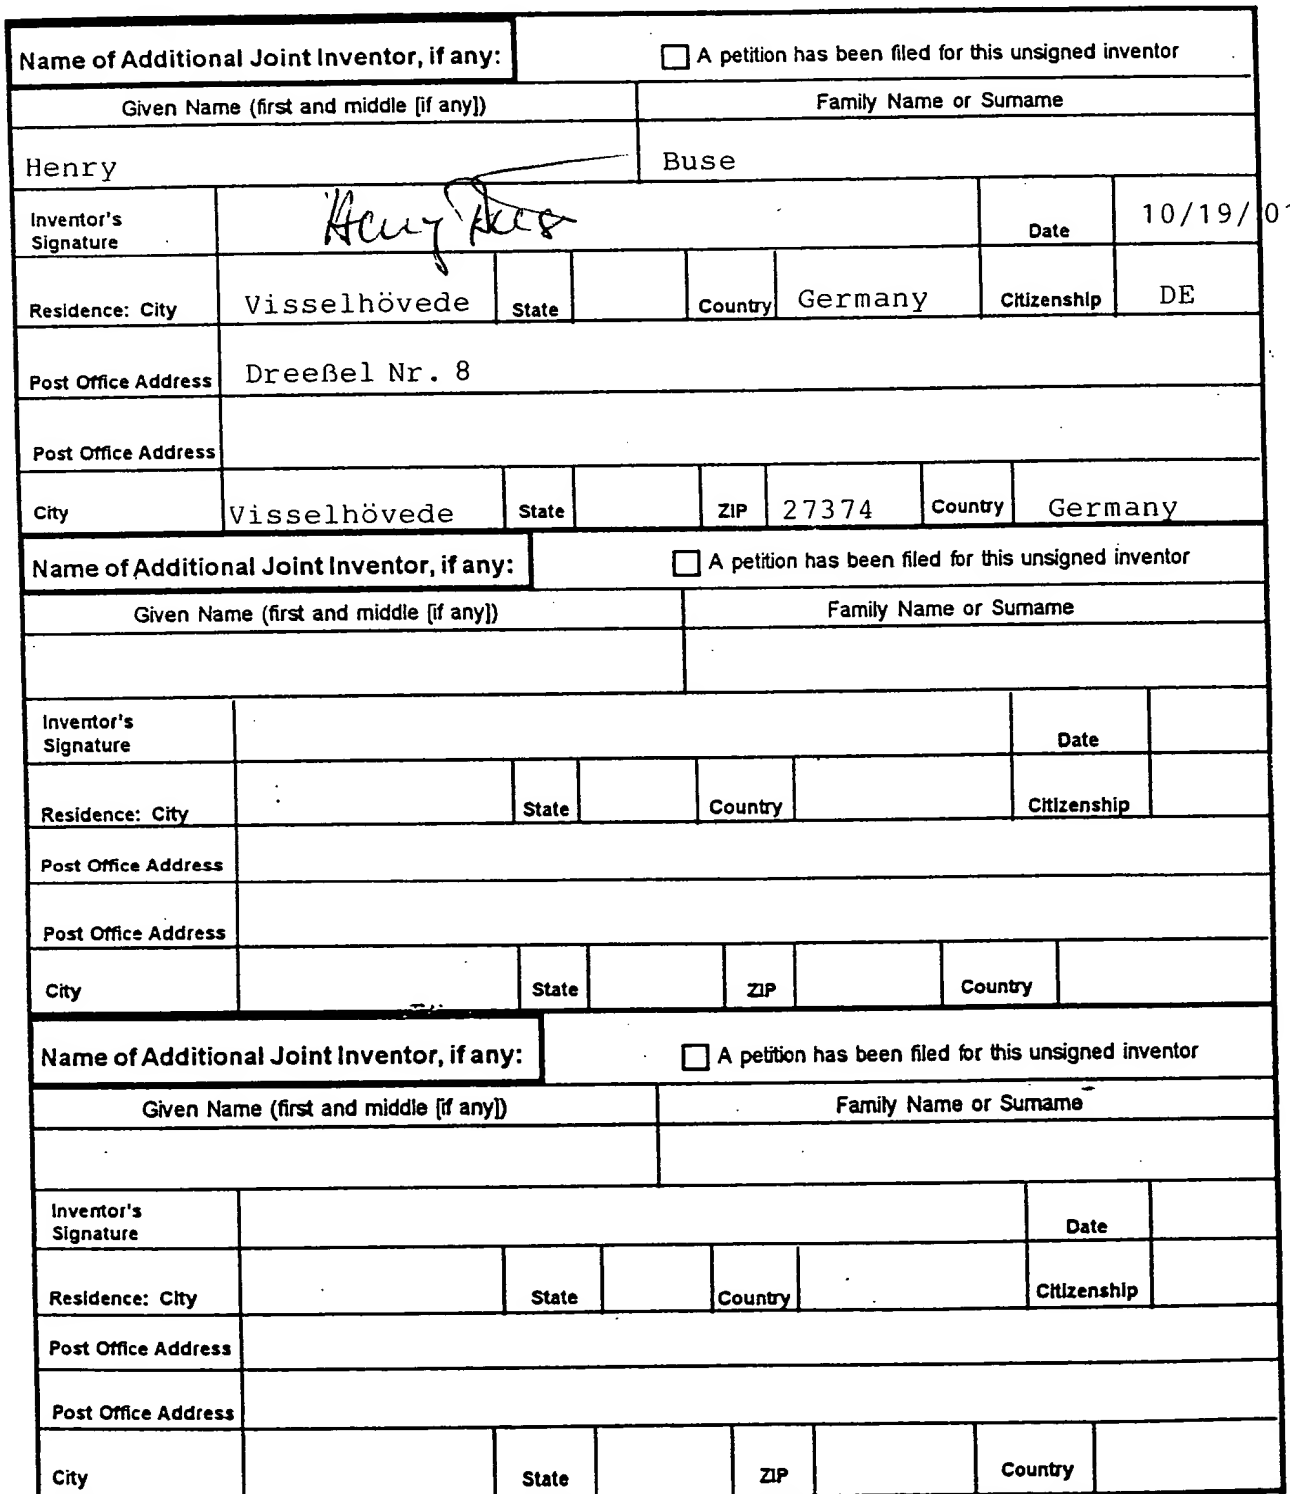 Name of Additional Joint Inventor, if any: A petition has been filed for this unsigned inventor
Given Name (first and middle [if any]) Family Name or Surname
Henry Buse
Inventor's Signature Henry Date 10/19/01
Residence: City Visselhövede State Country Germany Citizenship DE
Post Office Address Dreeßel Nr. 8
Post Office Address
City Visselhövede State ZIP 27374 Country Germany
Name of Additional Joint Inventor, if any: A petition has been filed for this unsigned inventor
Given Name (first and middle [if any]) Family Name or Surname
Inventor's Signature Date
Residence: City State Country Citizenship
Post Office Address
Post Office Address
City State ZIP Country
Name of Additional Joint Inventor, if any: A petition has been filed for this unsigned inventor
Given Name (first and middle [if any]) Family Name or Surname
Inventor's Signature Date
Residence: City State Country Citizenship
Post Office Address
Post Office Address
City State ZIP Country